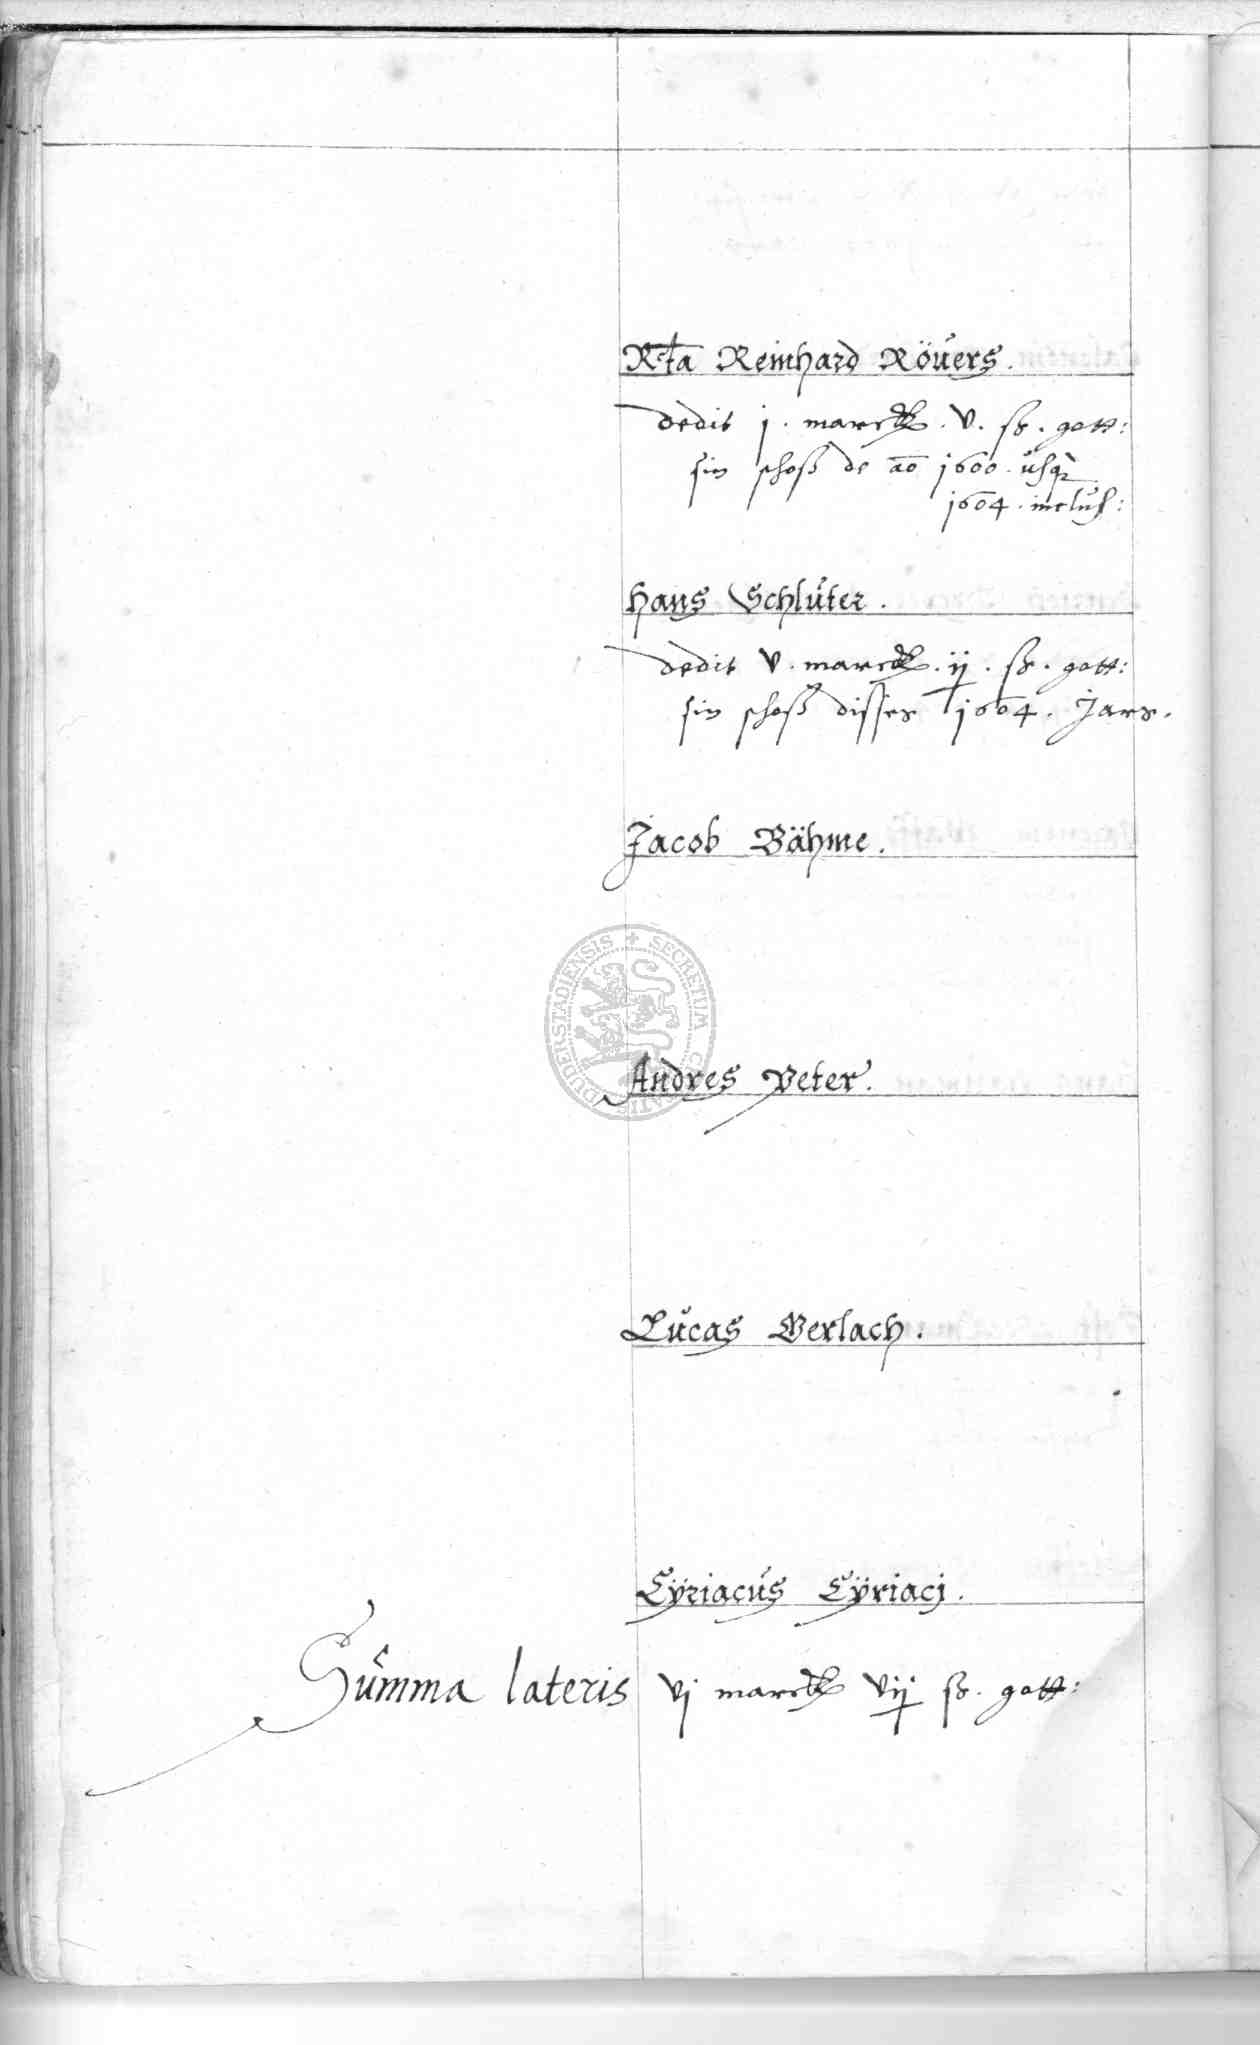 Rcta Reinhard Röuers.
dedit j. marck. v. ß. gott:
sin schoß de ao 1600. usq
1604. inclus:
Hans Schluter.
dedit v. marck. ij. ß. gott:
sin schoß disses 1604. Jars.
Jacob Bähme.
DUDERSTADIENSIS + SECRETUM
Andres Peter.
Lucas Gerlach.
Cÿriacus Cÿriacj.
Summa lateris vj marck vij ß. gott: